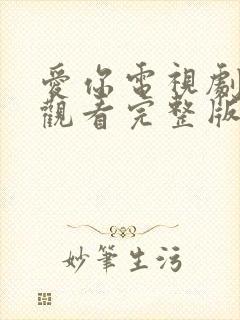 愛你電視劇
觀看完整版
妙筆生污